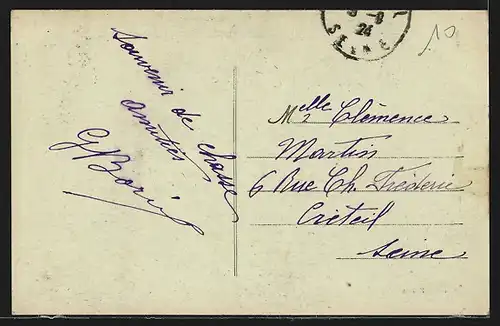 Souvenir de chasse
amitiés
G Boris
9-8
24
SEINE
10
Melle Clémence
Martin
6 Rue Ch. Fréderic
Créteil
Seine